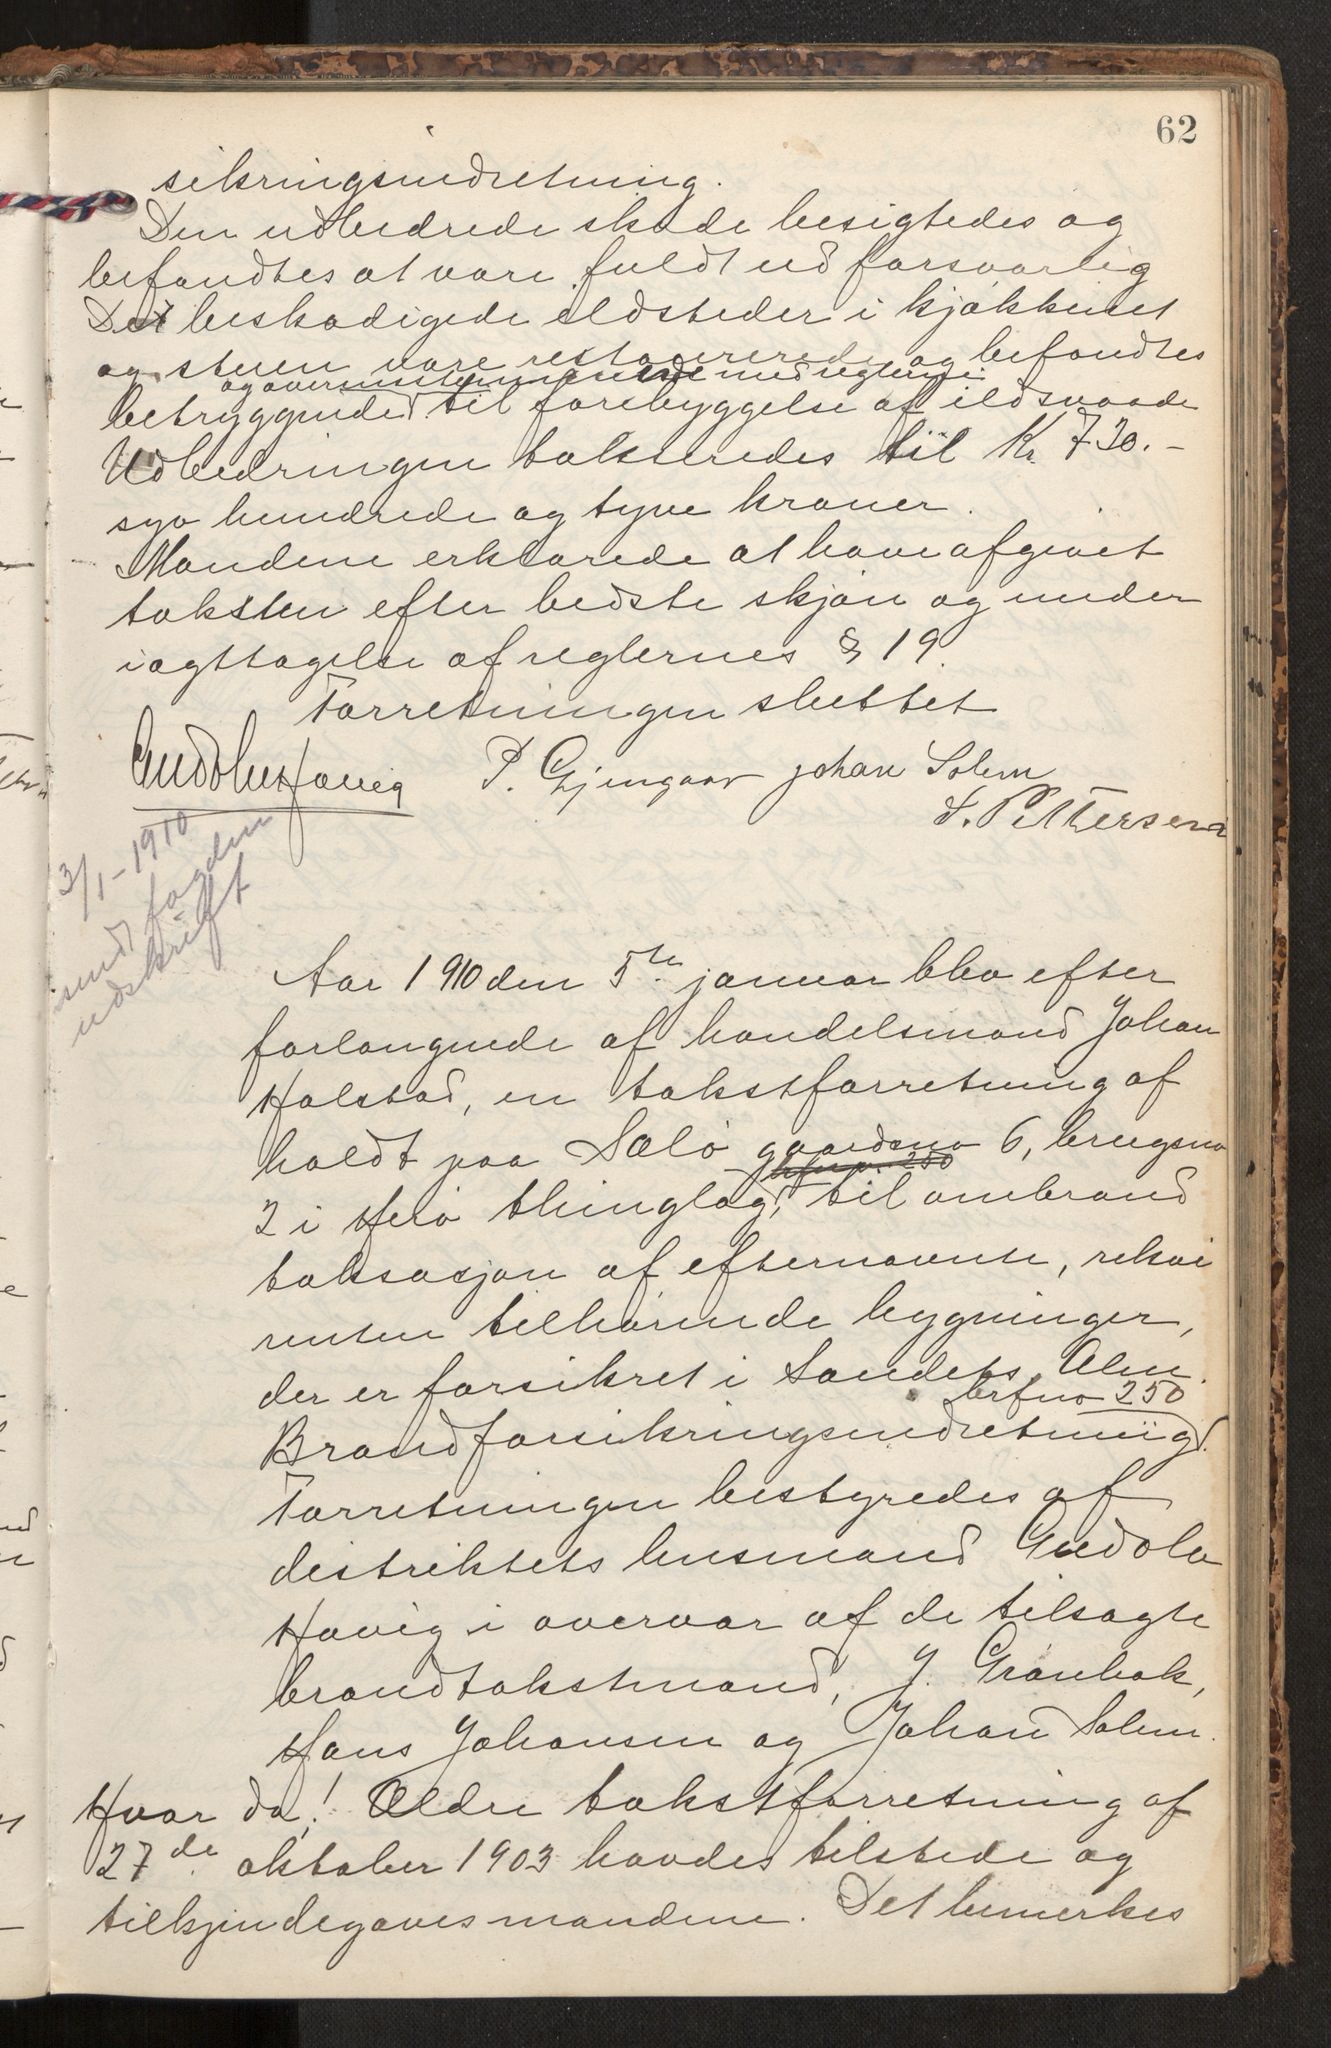 62
sikringsindretning.
Den udbedrede skade besigtedes og
befandtes at være fuldt ud forsvarlig
Det beskadigede ildsteder i kjøkkenet
og stuen vare restaurerede og befandtes
og overensstemmende med reglerne
betryggende til forebyggelse af ildsvaade
Udbedringen taksteredes til Kr 720.-
syv hundrede og tyve kroner.
Mændene erklærede at have afgivet
taksten efter bedste skjøn og under
iagttagelse af reglernes § 19.
Forretningen sluttet
Gudolu Høvig P. Gjengaar Johan Solem
S. Pettersen
3/1-1910
sendt fogden
udskrift
Aar 1910 den 5te januar blev efter
forlangende af handelsmand Johan
Halstad, en takstforretning af
holdt paa Sælø gaardsno 6, brugsno
brfno. 250
2 i Herø thinglag, til ombrand
taksasjon af efternævnte, rekvi
renten tilhørende bygninger,
der er forsikret i Landets Alm.
brfno 250
Brandforsikringsindretning.
Forretningen bestyredes af
distriktets lensmand Gudolu
Høvig i overvær af de tilsagte
brandtakstmænd, J. Grønbæk,
Hans Johansen og Johan Solem.
Hvor da! Ældre takstforretning af
27de oktober 1903 havdes tilstede og
tilkjendegaves mændene. Det bemerkes